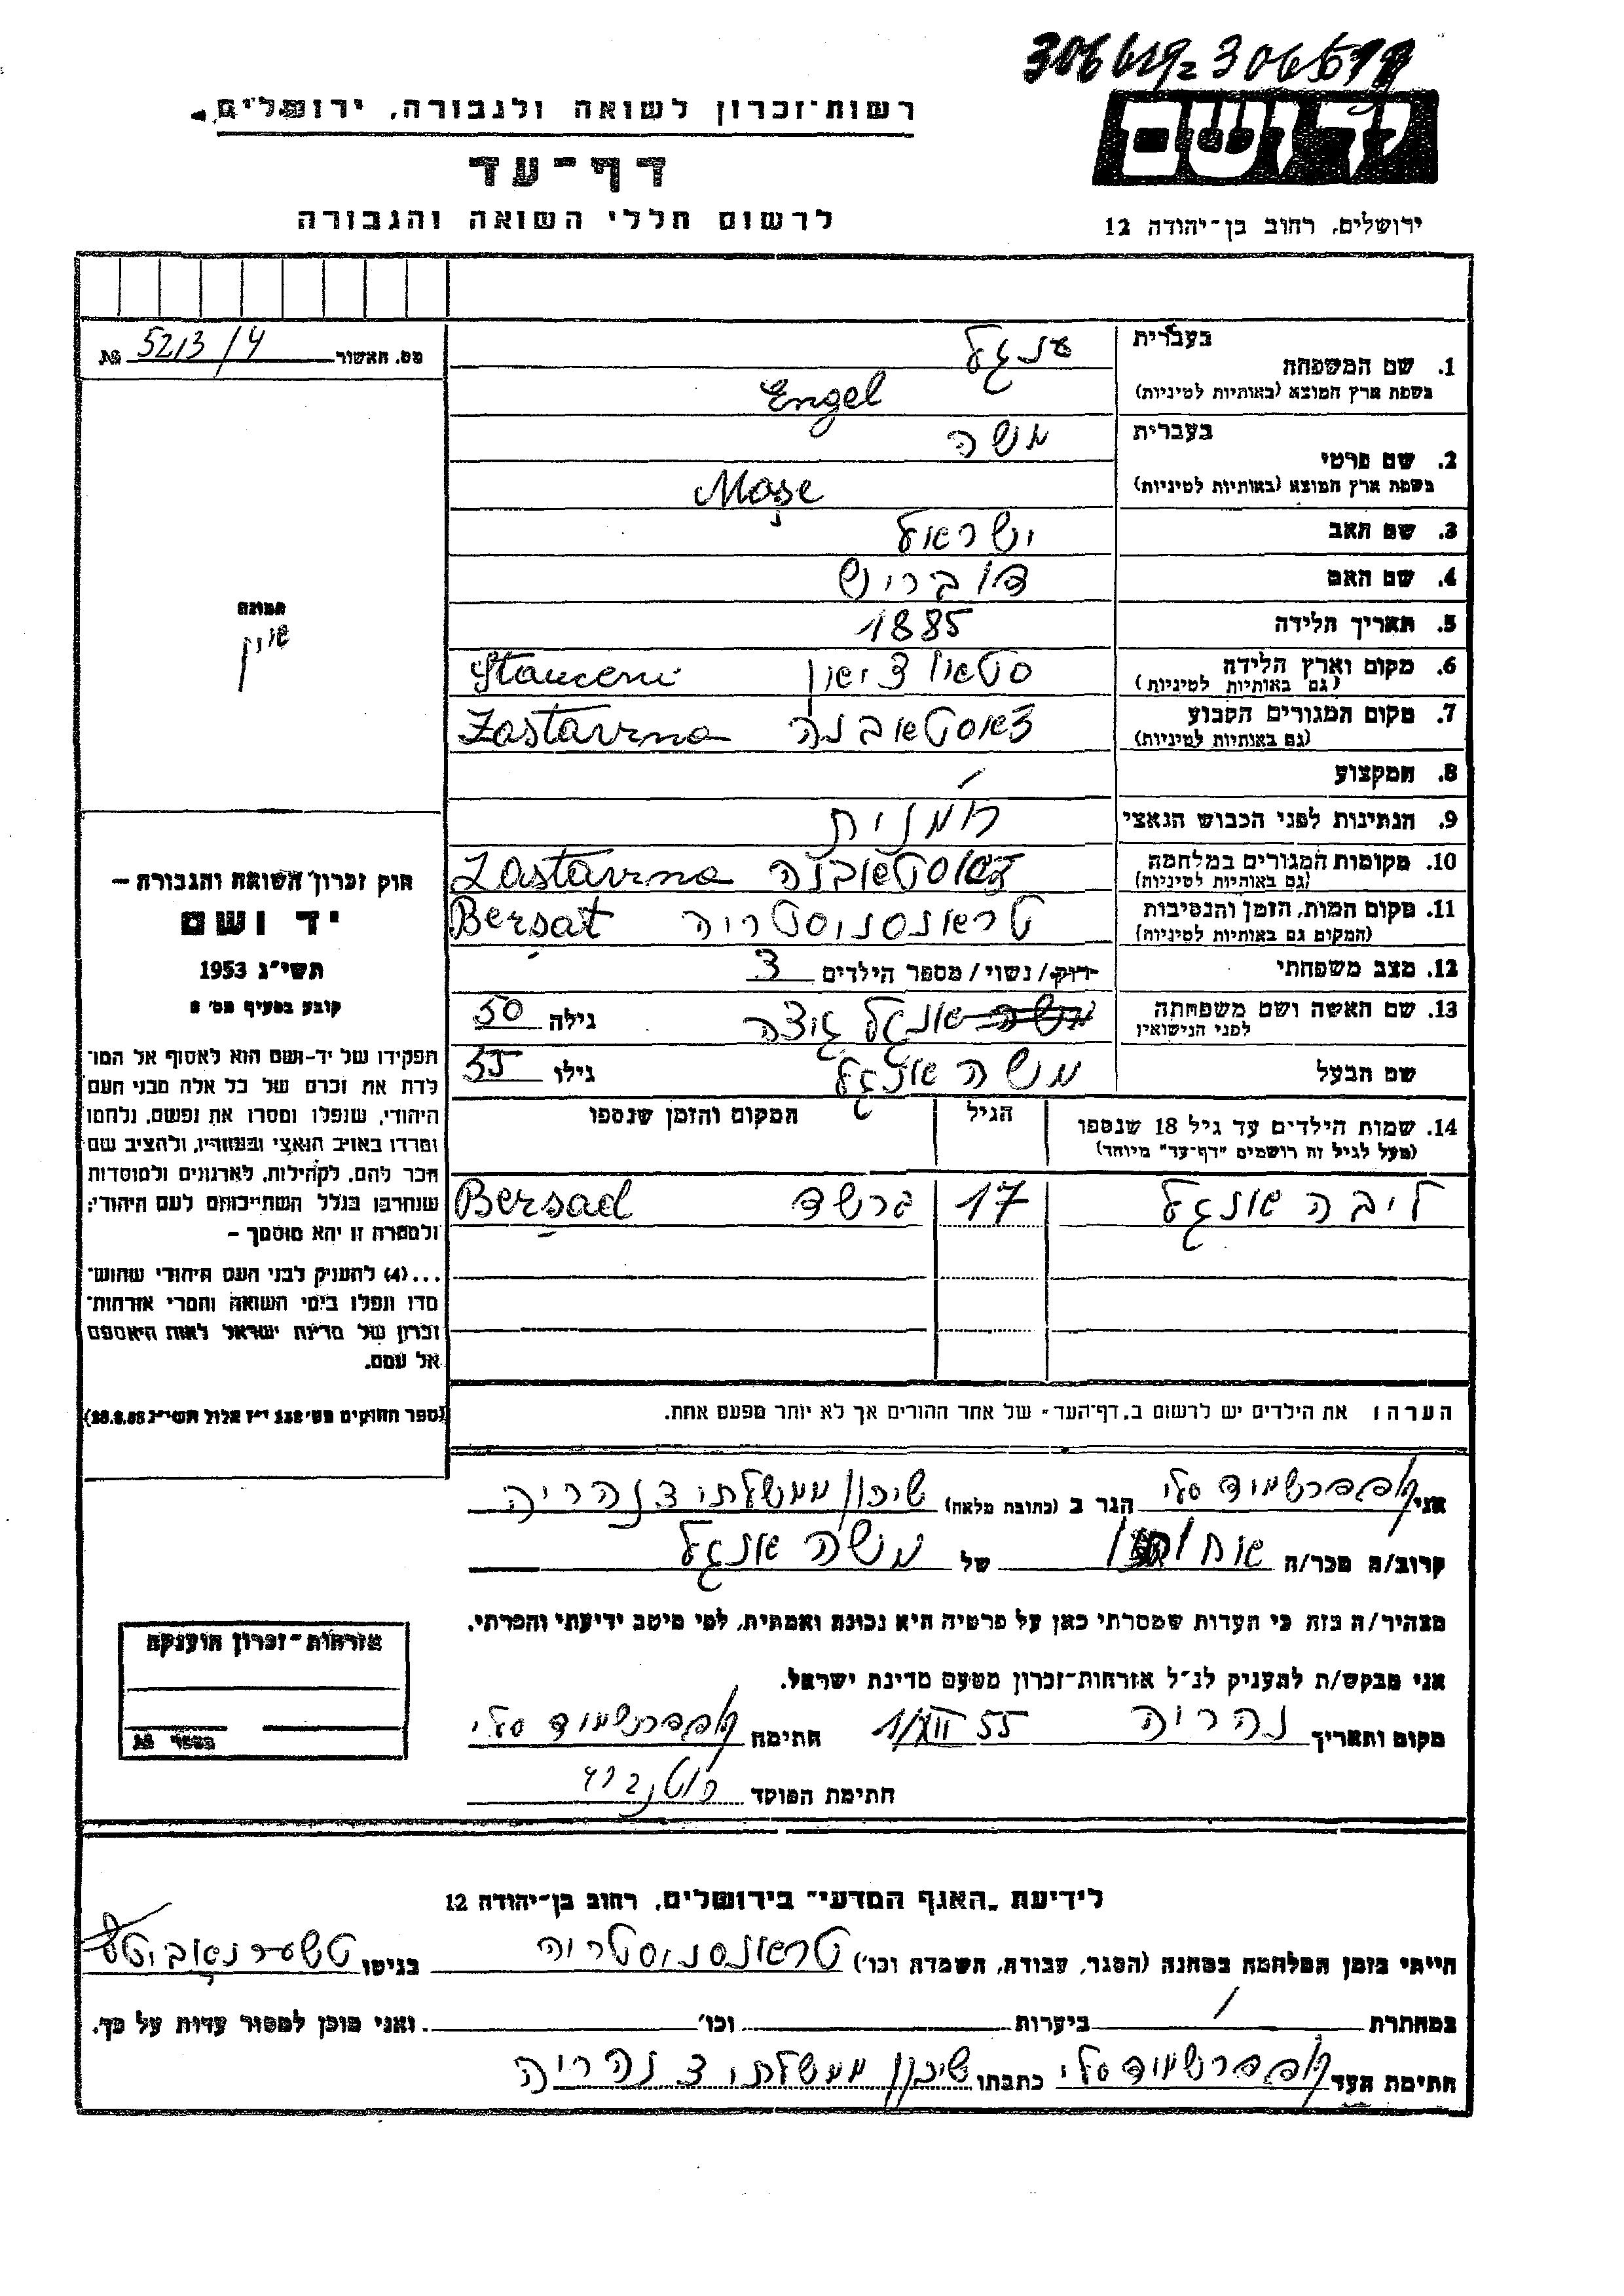 306619-306619
רשות-זכרון לשואה ולגבורה, ירושלים
יד ושם
דף-עד
לרשום חללי השואה והגבורה
ירושלים, רחוב בן-יהודה 12
מס. האשור № 5213/4
בעברית ענגל
1. שם המשפחה
בשפת ארץ המוצא (באותיות לטיניות) Engel
בעברית משה
2. שם פרטי
בשפת ארץ המוצא (באותיות לטיניות) Moşe
3. שם האב ישראל
4. שם האם דובריש
5. תאריך הלידה 1885
6. מקום וארץ הלידה Stauceni
(גם באותיות לטיניות)
7. מקום המגורים הקבוע זאסטאבנה Zastavna
(גם באותיות לטיניות)
8. המקצוע /
9. הנתינות לפני הכבוש הנאצי רומנית
10. מקומות המגורים במלחמה זאסטאבנה Zastavna
(גם באותיות לטיניות)
11. מקום המות, הזמן והנסיבות טראנסניסטריה Berşat
(המקום גם באותיות לטיניות)
12. מצב משפחתי רווק/נשוי/מספר הילדים 3
13. שם האשה ושם משפחתה אנגל גילה 50
לפני הנישואין
שם הבעל משה אנגל גילו 55
תמונה
אין
חוק זכרון השואה והגבורה –
יד ושם
תשי״ג 1953
קובע בסעיף מס׳ 2
תפקידו של יד-ושם הוא לאסוף אל המו־
לדת את זכרם של כל אלה מבני העם
היהודי, שנפלו ומסרו את נפשם, נלחמו
ומרדו באויב הנאצי ובעוזריו, ולהציב שם
וזכר להם, לקהילות, לארגונים ולמוסדות
שנחרבו בגלל השתייכותם לעם היהודי;
ולמטרה זו יהא מוסמך –
...(4) להעניק לבני העם היהודי שהוש־
מדו ונפלו בימי השואה והמרי אזרחות־
זכרון של מדינת ישראל לאות היאספם
אל עמם.
(ספר החוקים מס׳ 132 י״ז אלול תשי״ג 28.8.53)
14. שמות הילדים עד גיל 18 שנספו הגיל המקום והזמן שנספו
(מעל לגיל זה רושמים "דף-עד" מיוחד)
ליבה אנגל 17 ברשד Berşad
הערה: את הילדים יש לרשום ב„דף-העד" של אחד ההורים אך לא יותר מפעם אחת.
אני סלי הגר ב (כתובת מלאה) שיכון ממשלתי 3 נהריה
קרוב/ה מכר/ה של משה אנגל
מצהיר/ה בזה כי העדות שמסרתי כאן על פרטיה היא נכונה ואמתית, לפי מיטב ידיעתי והכרתי.
אני מבקש/ת להעניק לנ״ל אזרחות-זכרון מטעם מדינת ישראל.
מקום ותאריך נהריה 1/XII 55 חתימה סלי
חתימת הפוקד
אזרחות-זכרון הוענקה
מספר №
לידיעת „האגף המדעי" בירושלים, רחוב בן-יהודה 12
הייתי בזמן המלחמה במחנה (הסגר, עבודה, השמדה וכו׳) טראנסניסטריה בגיטו
במחתרת / ביערות וכו׳ ואני מוכן למסור עדות על כך.
חתימת העד סלי כתבתו שיכון ממשלתי 3 נהריה